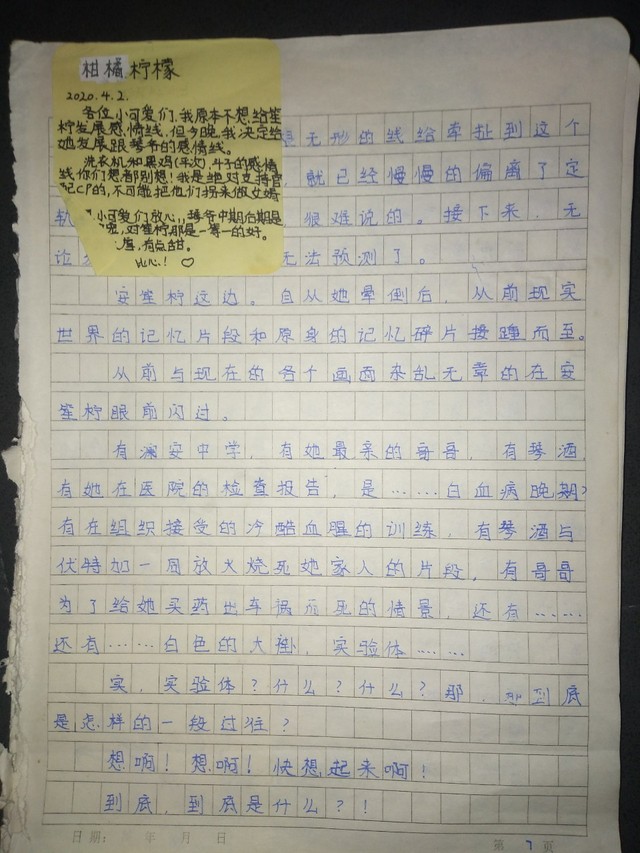 柑橘柠檬
2020.4.2.
各位小可爱们,我原本不想给笙
柠发展感情线,但今晚,我决定给
她发展跟琴爷的感情线。
洗衣机和黑鸡(平次),斗子的感情
线,你们想都别想!我是绝对支持官
配CP的,不可能把他们拐来做女婿
小可爱们放心,琴爷中期后期是
宠,对笙柠那是一等一的好。
虐,有点甜。
比心!♡
无形的线给牵扯到这个
就已经慢慢的偏离了定
轨 很难说的。接下来,无
论 无法预测了。
安笙柠这边。自从她晕倒后,从前现实
世界的记忆片段和原身的记忆碎片接踵而至。
从前与现在的各个画面杂乱无章的在安
笙柠眼前闪过。
有澜安中学,有她最亲的哥哥,有琴酒,
有她在医院的检查报告,是……白血病晚期?
有在组织接受的冷酷血腥的训练,有琴酒与
伏特加一同放火烧死她家人的片段,有哥哥
为了给她买药出车祸而死的情景,还有……
还有……白色的大褂,实验体……
实,实验体?什么?什么?那,那到底
是怎样的一段过往?
想啊!想啊!快想起来啊!
到底,到底是什么?!
日期: 年 月 日 第 7 页